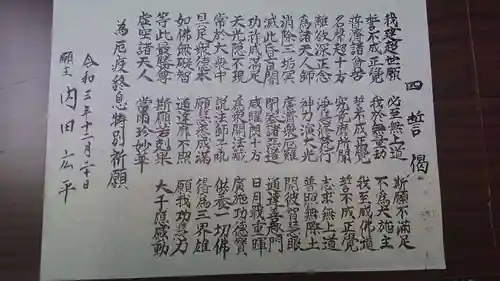 四誓偈
我建超世願 必至無上道 斯願不滿足
誓不成正覺 我於無量劫 不為大施主
普濟諸貧苦 誓不成正覺 我至成佛道
名聲超十方 究竟靡所聞 誓不成正覺
離欲深正念 淨慧修梵行 志求無上道
為諸天人師 神力演大光 普照無際土
消除三垢冥 廣濟衆厄難 開彼智慧眼
滅此昏盲闇 閉塞諸惡道 通達善趣門
功祚成滿足 威曜朗十方 日月戢重暉
天光隱不現 為衆開法藏 廣施功德寶
常於大衆中 說法師子吼 供養一切佛
具足衆德本 願慧悉成滿 得為三界雄
如佛無礙智 通達靡不照 願我功慧力
等此最勝尊 斯願若剋果 大千應感動
虚空諸天人 當雨珍妙華
為厄疫終息特別祈願
令和三年十二月二十日
願主 内田広平